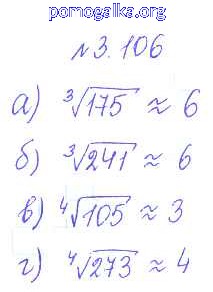 pomogalka.org
№3.106
а) ∛175 ≈ 6
б) ∛241 ≈ 6
в) ∜105 ≈ 3
г) ∜273 ≈ 4